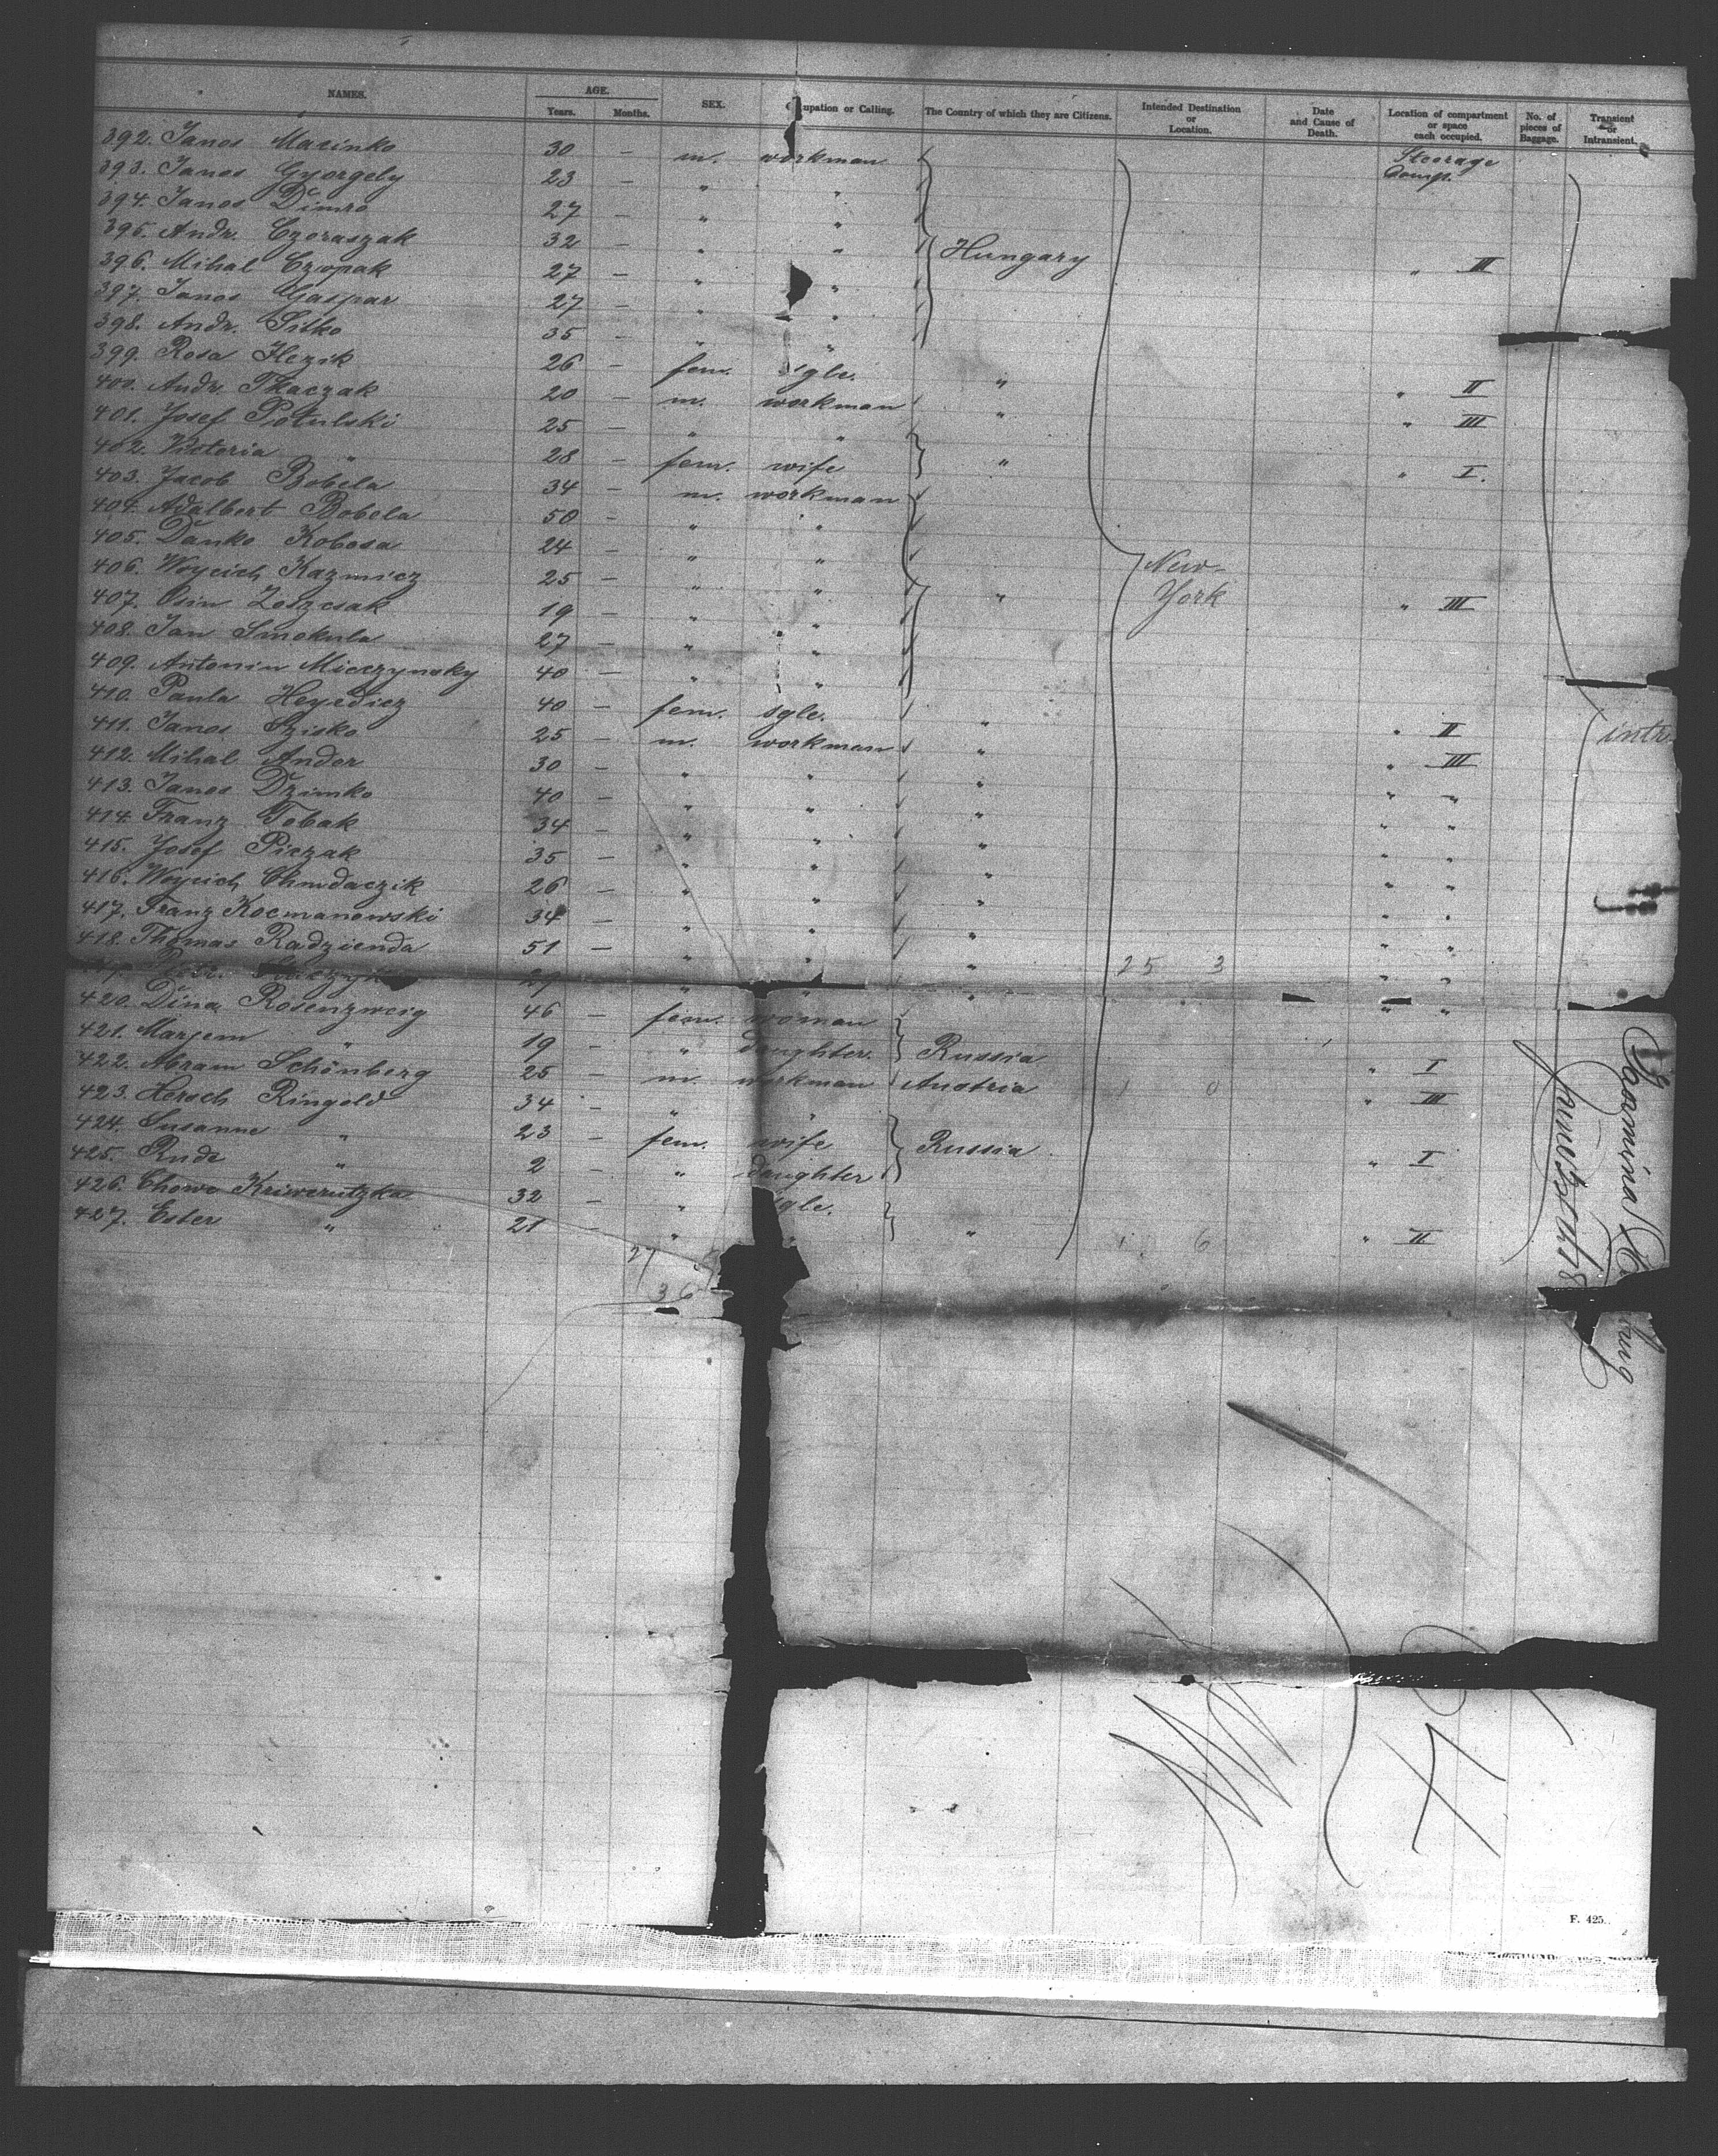 NAMES. AGE. Years. Months. SEX. upation or Calling. The Country of which they are Citizens. Intended Destination or Location. Date and Cause of Death. Location of compartment or space each occupied. No. of pieces of Baggage. Transient or Intransient.
392. Janos Macinko 30 — m. workman Steerage Comp.
393. Janos Gyorgely 23 — " "
394. Janos Dimro 27 — " "
395. Andr. Czoraszak 32 — " " Hungary
396. Mihal Czopak 27 — " " " III
397. Janos Gaspar 27 — " "
398. Andr. Sitko 35 — " "
399. Rosa Hezik 26 — fem. sgle. " " II
400. Andr. Tkaczak 20 — m. workman " " III
401. Josef Potulski 25 — " "
402. Victoria " 28 — fem. wife " " I.
403. Jacob Bobela 34 — m. workman
404. Adalbert Bobela 50 — " "
405. Danko Kobosa 24 — " " New-
406. Woycich Kazmicz 25 — " " " York " III
407. Osin Loszcsak 19 — " "
408. Jan Smokula 27 — " "
409. Antonin Mierzynsky 40 — " "
410. Paula Heyedicz 40 — fem. sgle. " " II intr.
411. Janos Szisko 25 — m. workman " " III
412. Mihal Ander 30 — " " " " "
413. Janos Dzimko 40 — " " " " "
414. Franz Tobak 34 — " " " " "
415. Josef Piczak 35 — " " " " "
416. Woycich Chmdaczik 26 — " " " " "
417. Franz Kocmanowski 34 — " " " " "
418. Thomas Radzienda 51 — " " " 25 3 " "
29 " " " " "
420. Dina Rosenzweig 46 — fem. woman
421. Marjem " 19 — " daughter. Russia " I
422. Abram Schönberg 25 — m. workman Austria 1 0 " III
423. Hersch Ringold 34 — " "
424. Susanne " 23 — fem. wife Russia " I
425. Rude " 2 — " daughter
426. Chowe Kriwerutzka 32 — " sgle.
427. Ester " 21 — " " " 1 6 " II
27
36
F. 425.